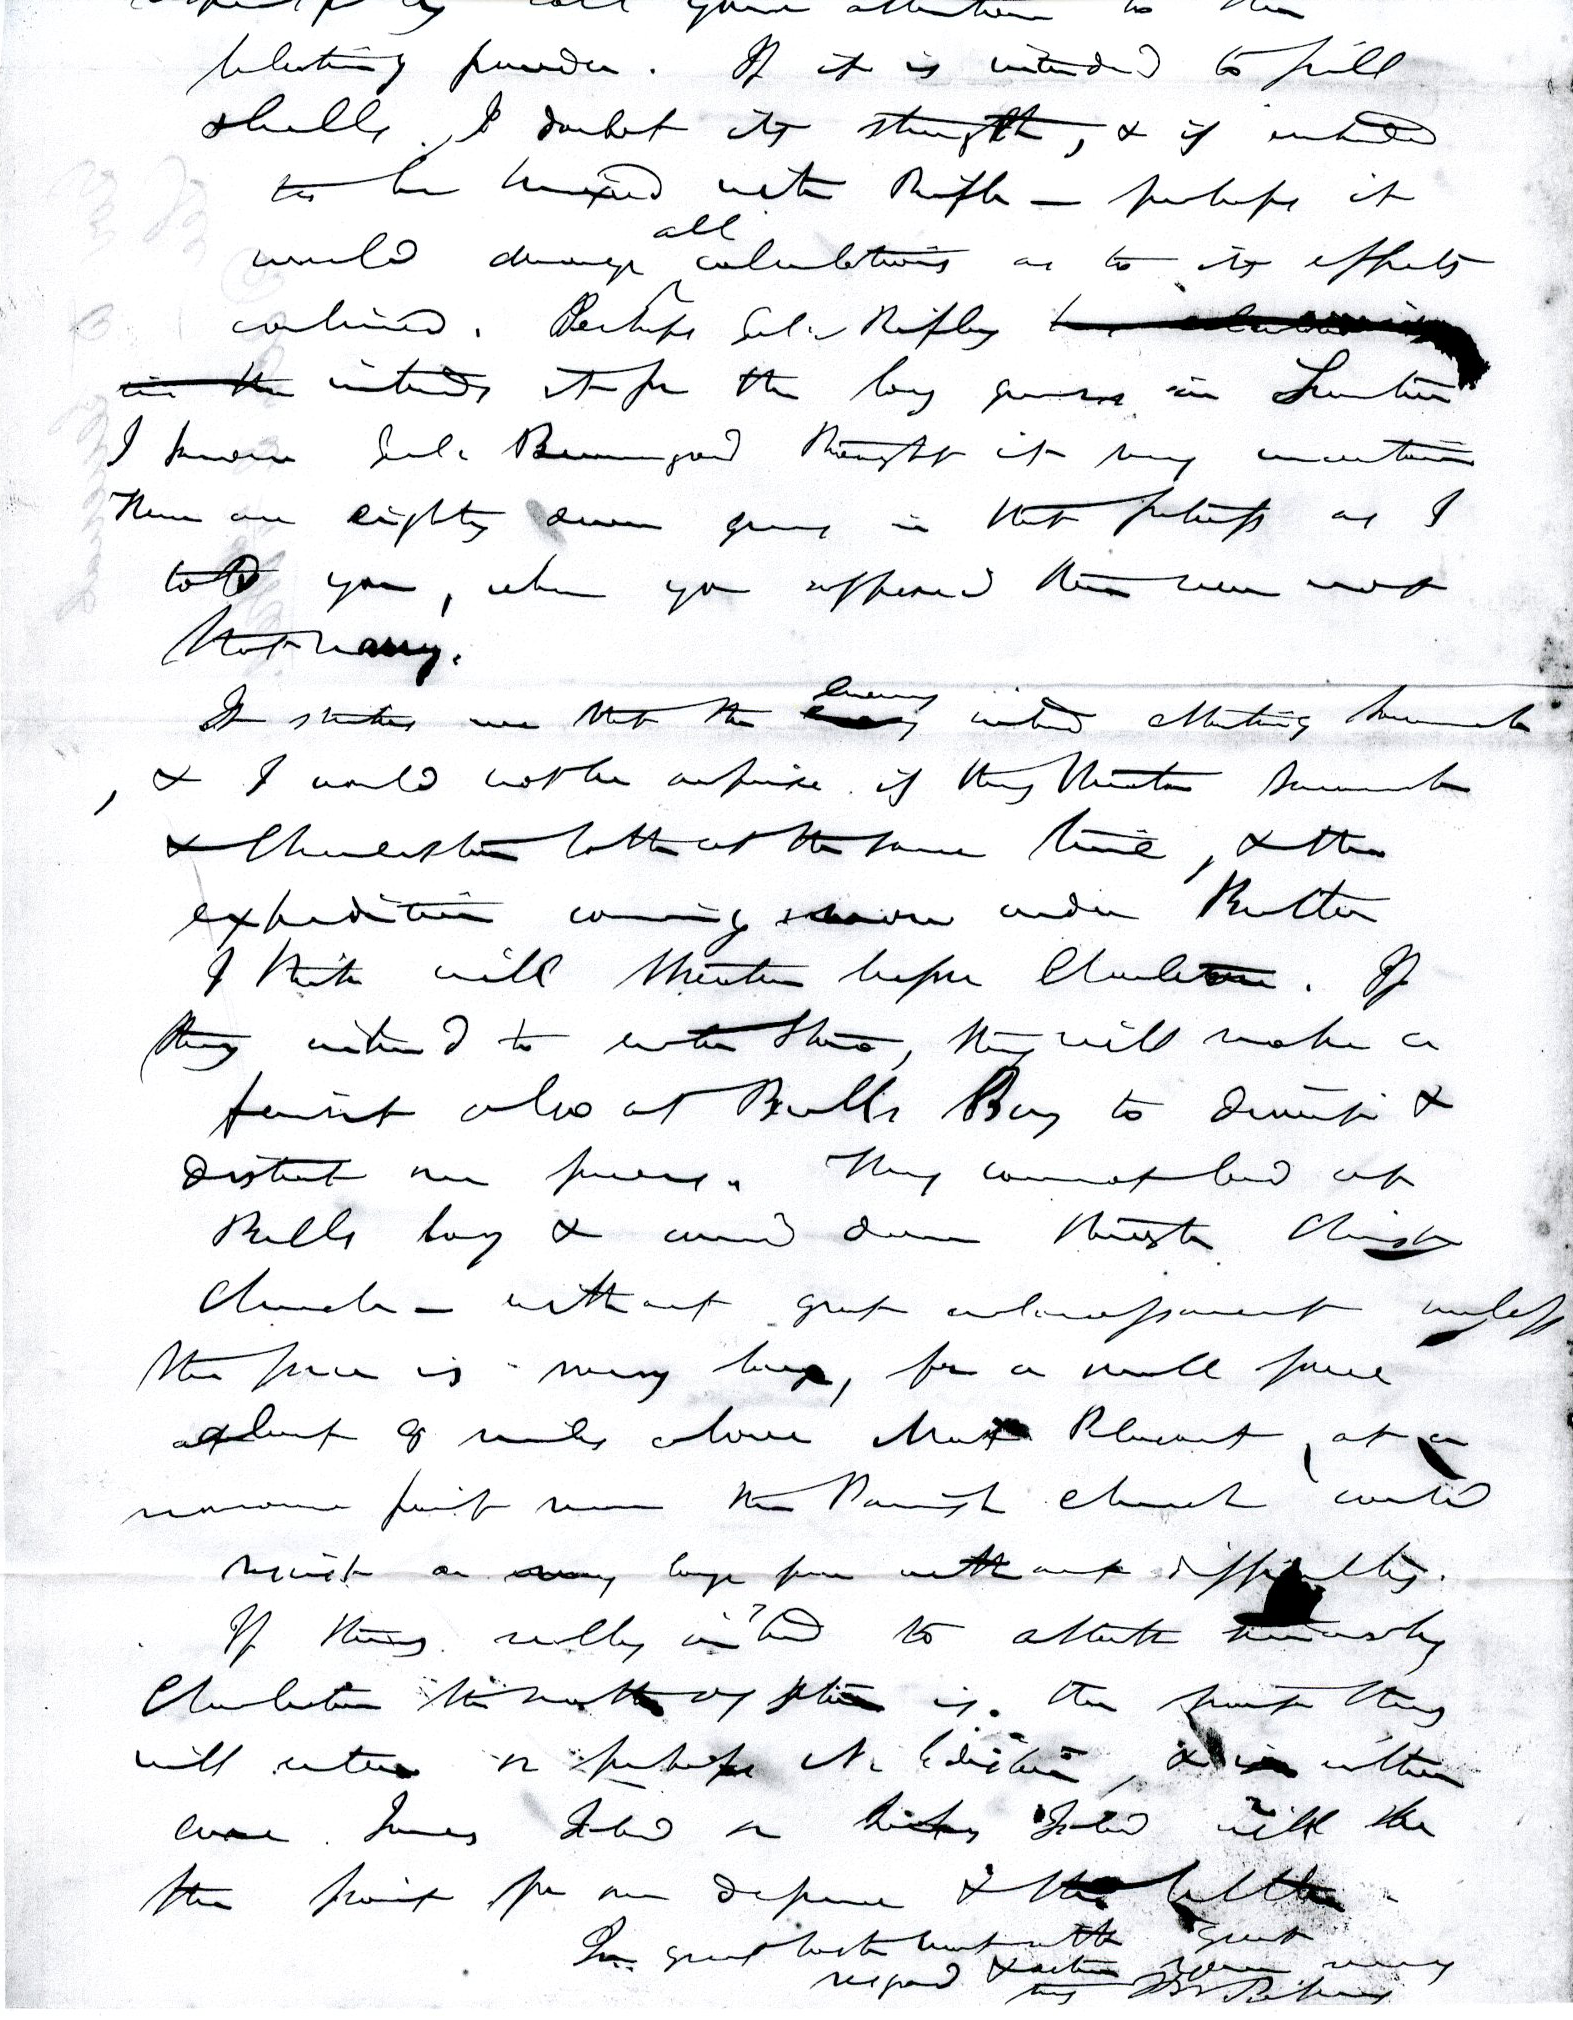 call your attention to the
blasting powder. If it is intended to fill
shells, I doubt its strength, & if intended
to be mixed with Rifle — perhaps it
would derange all calculations as to its effects
combined. Perhaps Genl. Ripley
in the intends it for the long guns in Sumter
I know Genl. Beauregard thought it very uncertain
There are eighty seven guns in that fortress as I
told you, when you supposed there were not
that many.
It strikes me that the enemy intend attacking Savannah
, & I would not be surprise if they threaten Savannah
& Charleston both at the same time, & the
expedition coming under Butler
I think will threaten before Charleston. If
they intend to enter Stono, they will make a
feint also at Bulls Bay to deceive &
distract our forces. They cannot land at
Bulls bay & come down through Christ
Church — without great embarrassment unless
the force is very large, for a small force
about 9 miles above Mount Pleasant, at a
narrow point near the Parish church could
resist a very large force without difficulty.
If they really intend to attack seriously
Charleston the mouth of Stono is the point they
will enter or perhaps N. Edisto, & in either
case James Island or Johns Island will be
the point for our defence & the battle.
In great haste but with great
regard & esteem yours very
truly F W Pickens